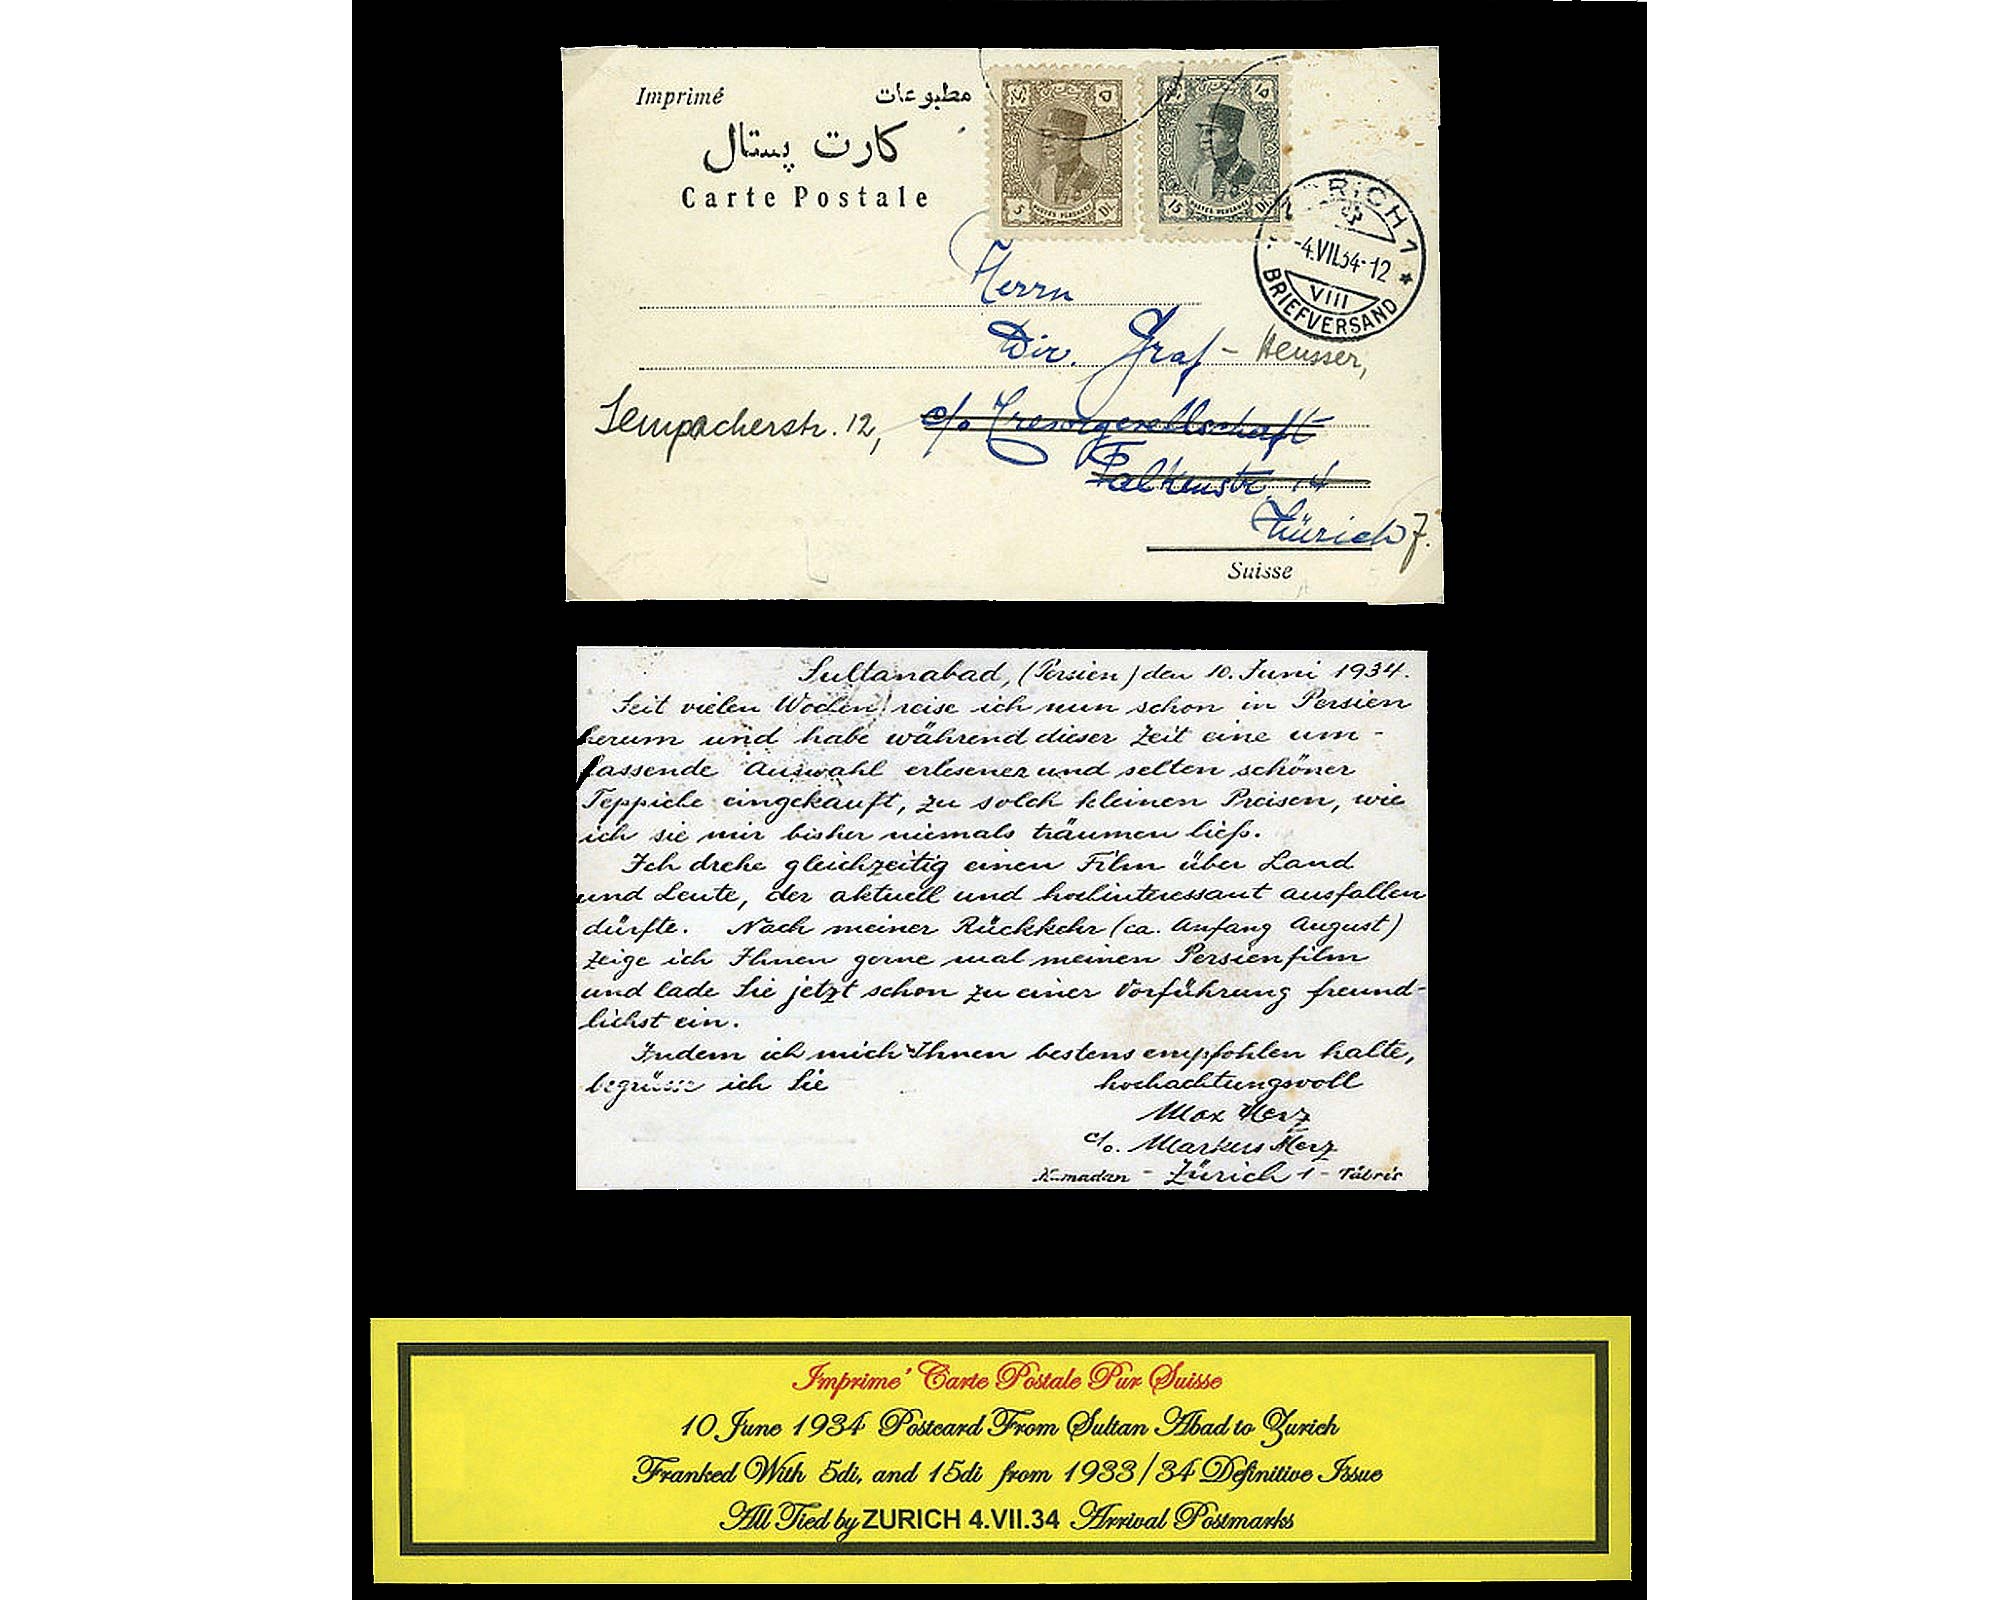 Imprimé مطبوعات
کارت پستال
Carte Postale
۵ ۱۵
5 POSTES PERSANES DI.
15 POSTES PERSANES DI.
RICH 1
-4.VII.34-12
VIII
BRIEFVERSAND
Herrn
Dir. Graf - Heusser,
Sempacherstr. 12, c/o Tresorgesellschaft
Falkenstr. 14
Zürich 7.
Suisse
Sultanabad, (Persien) den 10. Juni 1934.
Seit vielen Wochen reise ich nun schon in Persien
herum und habe während dieser Zeit eine um-
fassende Auswahl erlesener und selten schöner
Teppiche eingekauft, zu solch kleinen Preisen, wie
ich sie mir bisher niemals träumen ließ.
Ich drehe gleichzeitig einen Film über Land
und Leute, der aktuell und hochinteressant ausfallen
dürfte. Nach meiner Rückkehr (ca. Anfang August)
zeige ich Ihnen gerne mal meinen Persienfilm
und lade Sie jetzt schon zu einer Vorführung freund-
lichst ein.
Indem ich mich Ihnen bestens empfohlen halte,
begrüsse ich Sie hochachtungsvoll
Max Merz
c/o. Markus Merz
Hamadan - Zürich 1 - Täbris
Imprime' Carte Postale Pur Suisse
10 June 1934 Postcard From Sultan Abad to Zurich
Franked With 5di, and 15di from 1933/34 Definitive Issue
All Tied by ZURICH 4.VII.34 Arrival Postmarks